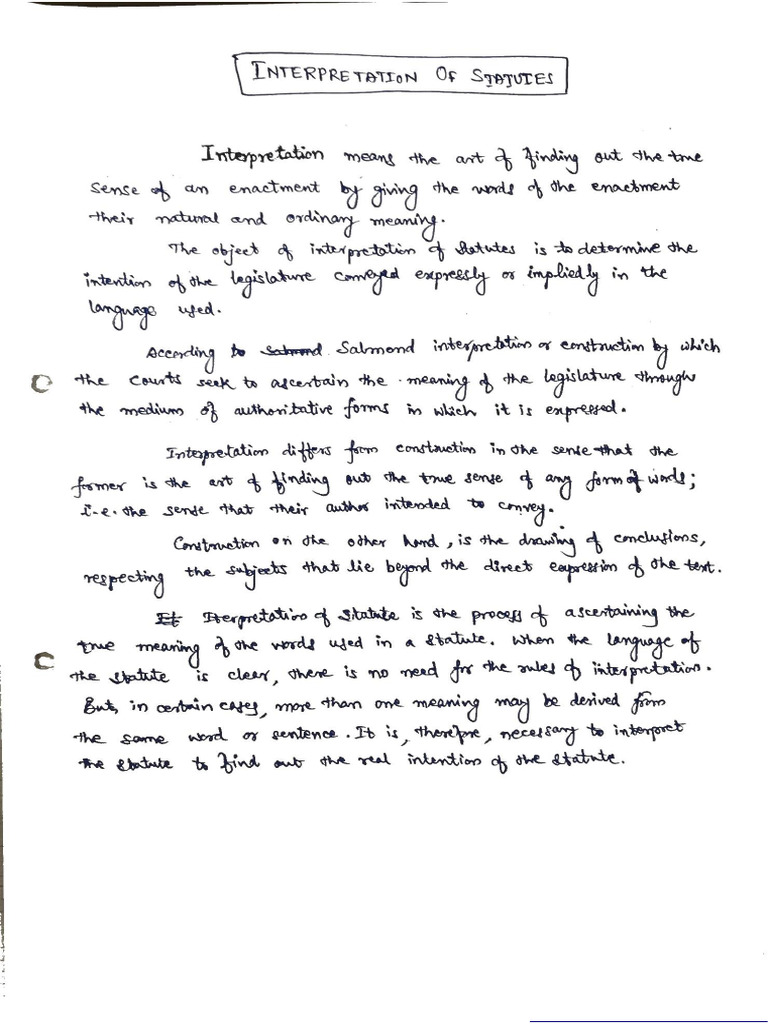 INTERPRETATION OF STATUTES
Interpretation means the art of finding out the true
sense of an enactment by giving the words of the enactment
their natural and ordinary meaning.
The object of interpretation of statutes is to determine the
intention of the legislature conveyed expressly or impliedly in the
language used.
According to Salmond Salmond interpretation or construction by which
the courts seek to ascertain the meaning of the legislature through
the medium of authoritative forms in which it is expressed.
Interpretation differs from construction in the sense that the
former is the art of finding out the true sense of any form of words;
i.e. the sense that their author intended to convey.
Construction on the other hand, is the drawing of conclusions,
respecting the subjects that lie beyond the direct expression of the text.
It Iterpretation of Statute is the process of ascertaining the
true meaning of the words used in a statute. When the language of
the statute is clear, there is no need for the rules of interpretation.
But, in certain cases, more than one meaning may be derived from
the same word or sentence. It is, therefore, necessary to interpret
the statute to find out the real intention of the statute.